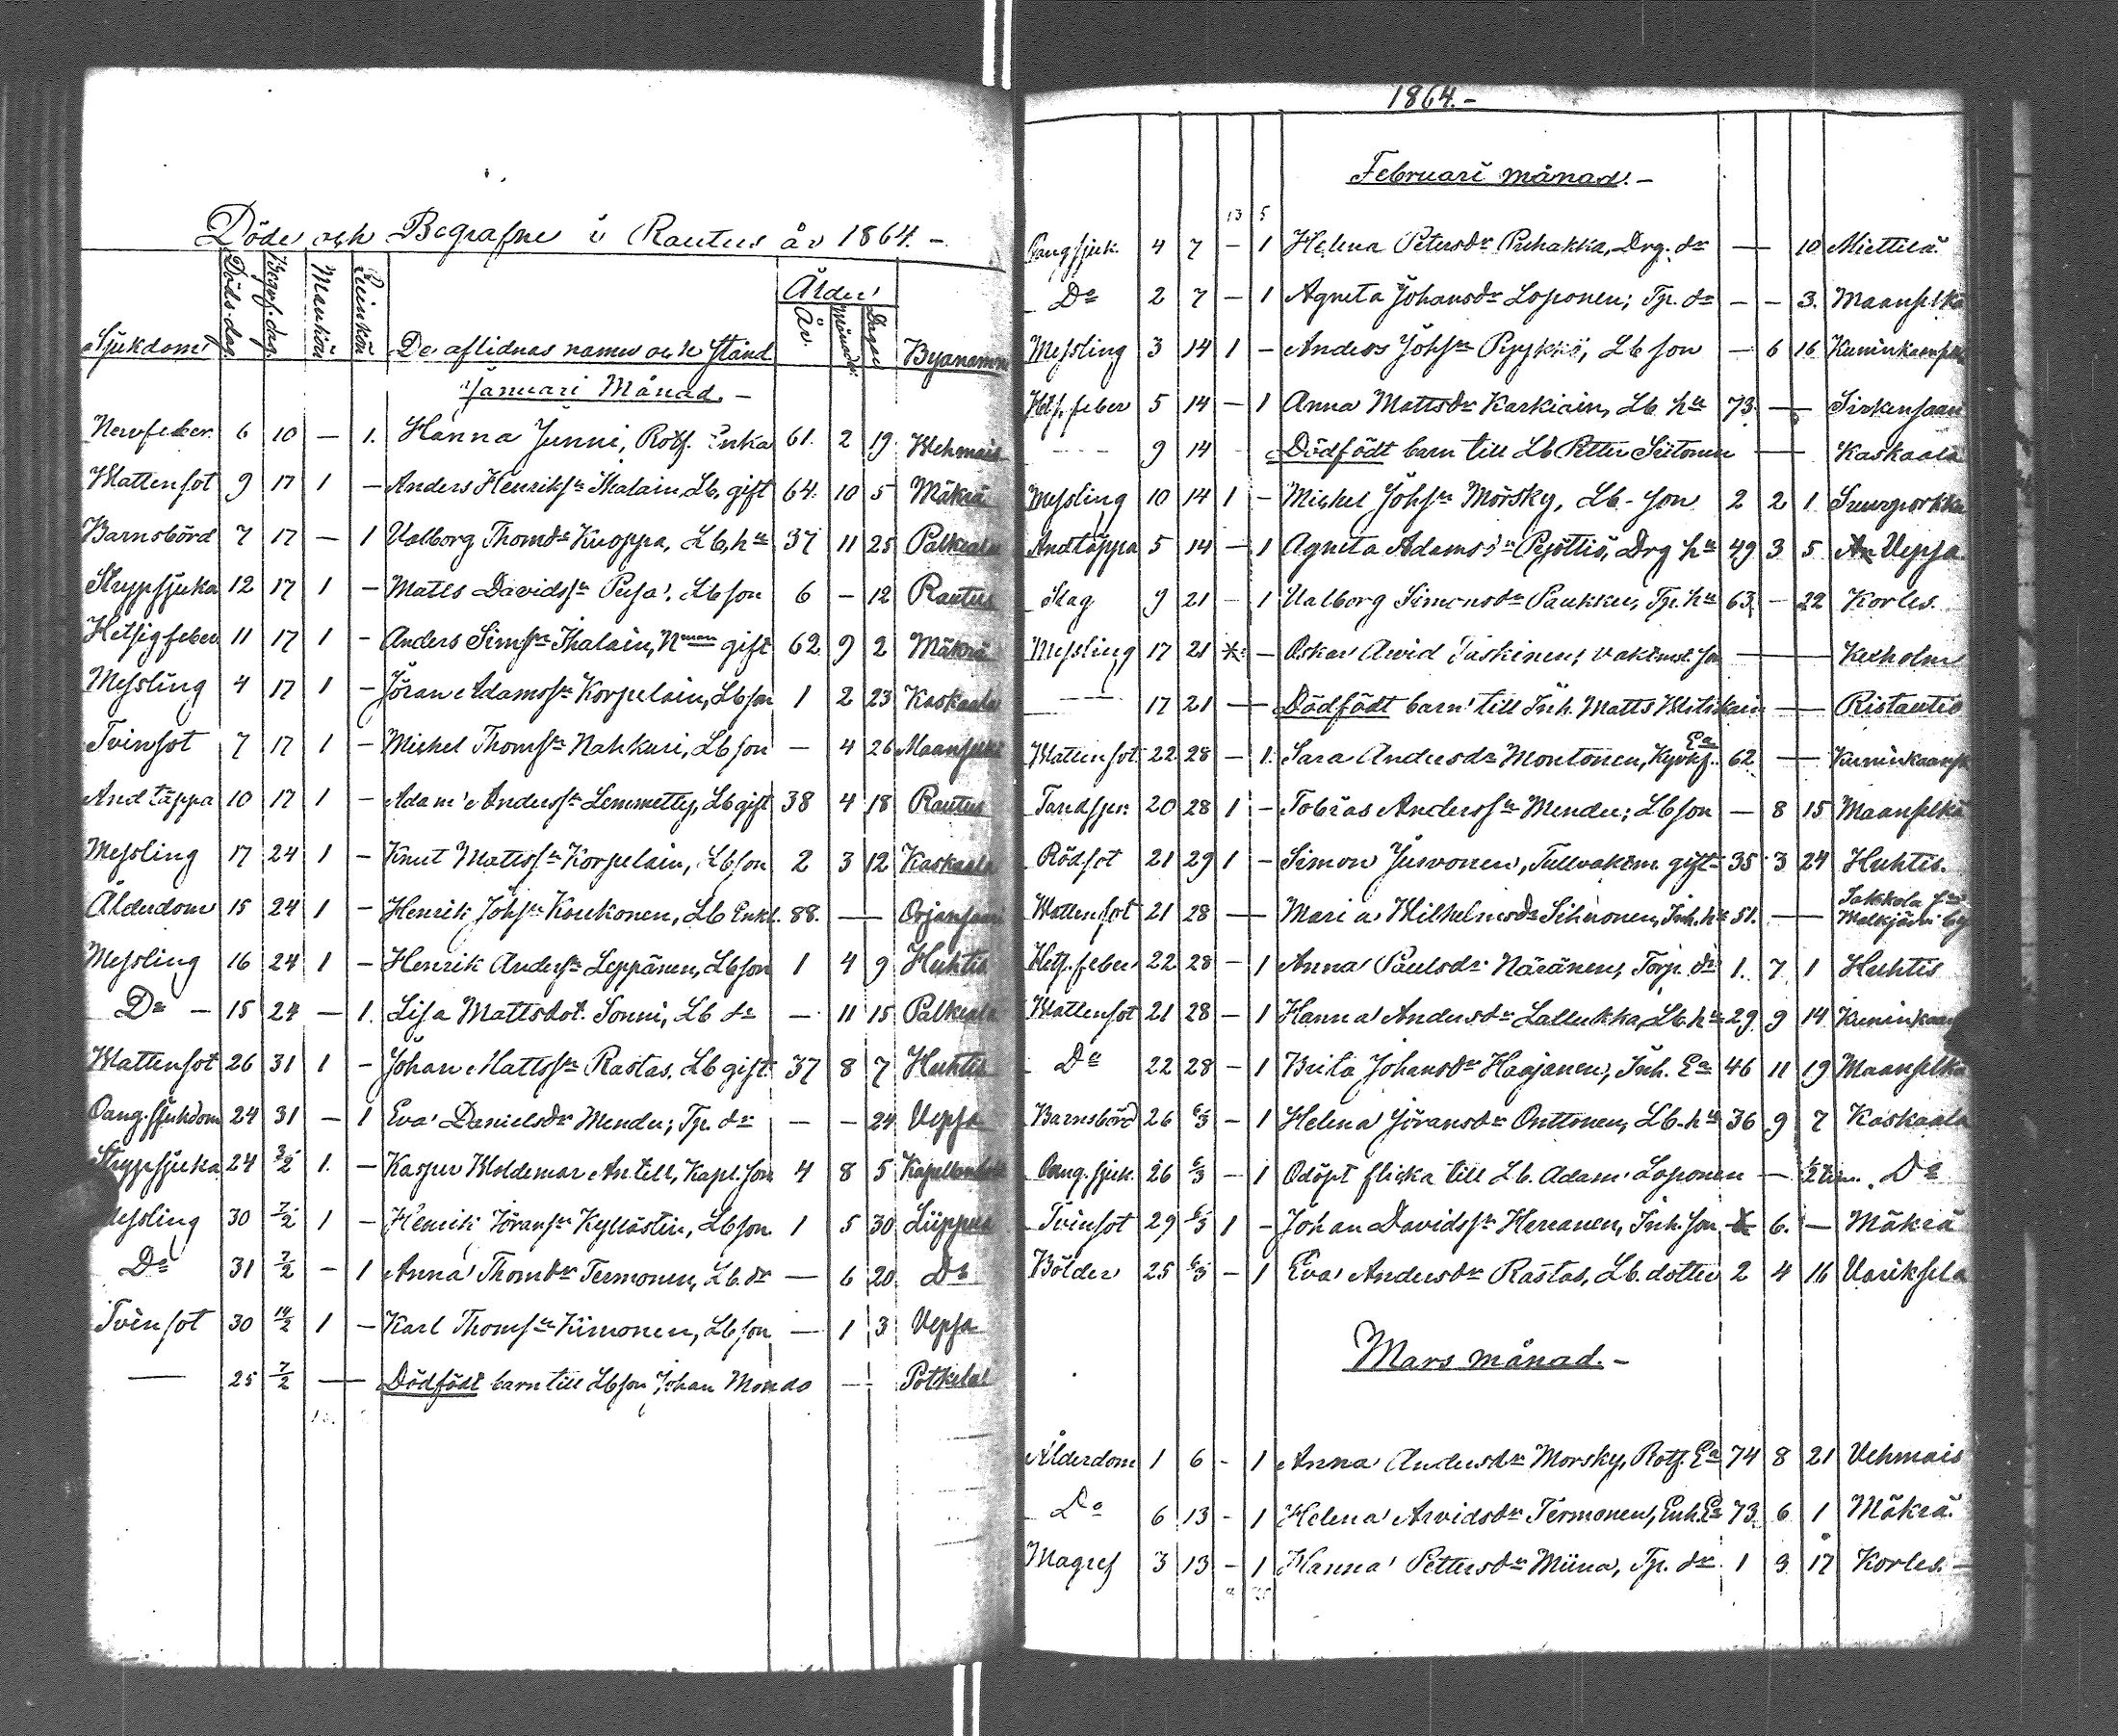 Döde och Begrafne i Rautus år 1864. –
Sjukdom Döds dag Begrf. dag Mankön Qvinkön De aflidnas namn och Stånd Ålder År Månad Dagar Byanamn
Januari Månad. –
Nervfeber 6 10 – 1. Hanna Junni, Rotf. Enka 61. 2 19. Wehmais
Wattensot 9 17 1 – Anders Henriksn Ihalain, Lb. gift 64. 10 5 Mäkrä
Barnsbörd 7 17 – 1 Valborg Thomdr Kuoppa, Lb. hu 37 11 25 Palkeala
Strypsjuka 12 17 1 – Matts Davidssn Pusa, Lb son 6 – 12 Rautus
Hetsig feber 11 17 1 – Anders Simsn Ihalain, Nman gift 62 9 2 Mäkrä
Messling 4 17 1 – Jöran Adamssn Korpelain, Lb son 1 2 23 Kaskaala
Tvinsot 7 17 1 – Michel Thomsn Nahkuri, Lb son – 4 26 Maanselkä
Andtäppa 10 17 1 – Adam Anderssn Lemmetty, Lb gift 38 4 18 Rautus
Messling 17 24 1 – Knut Mattssn Korpelain, Lb son 2 3 12 Kaskaala
Ålderdom 15 24 1 – Henrik Johsn Koukonen, Lb Enkl. 88. — Orjansaari
Messling 16 24 1 – Henrik Andersn Leppänen, Lb son 1 4 9 Huhtis
Do – 15 24 – 1. Lisa Mattsdot. Sonni, Lb dr – 11 15 Palkeala
Wattensot 26 31 1 – Johan Mattssn Rastas, Lb gift 37 8 7 Huhtis
Oang. sjukdom 24 31 – 1 Eva Danielsdr Mendu; Tp. dr – – 24 Vepsa
Strypsjuka 24 3/2 1. – Kasper Woldemar Antell, Kapl. son 4 8 5
Messling 30 7/2 1 – Henrik Jöransn Kyllästin, Lb son 1 5 30 Liippua
Do 31 7/2 – 1 Anna Thomdr Termonen, Lb. dr — 6 20. Do
Tvinsot 30 14/2 1 – Karl Thomsn Kiimonen, Lb son — 1 3 Vepsa
— 25 7/2 — Dödfödt barn till Lb son Johan Mondo — Potkela
1864. –
Februari månad. –
13 5
Oang sjuk. 4 7 – 1 Helena Petersdr Puhakka, Drg. dr — 10 Miettilä
Do 2 7 – 1 Agneta Johansdr Loponen; Tp. dr – – 3. Maanselkä
Messling 3 14 1 – Anders Johsn Pyykkö, Lb son – 6 16
Hets. feber 5 14 – 1 Anna Mattsdr Karkiain, Lb. hu 73. — Sirkensaari
– – – 9 14 Dödfödt barn till Lb Petter Siitonen — Kaskaala
Messling 10 14 1 – Michel Johsn Mörsky, Lb. son 2 2 1 Suurporkku
Andtäppa 5 14 – 1 Agneta Adamsdr Pyöttiö, Drg hu 49 3 5 Vepsa
Slag 9 21 – 1 Valborg Simonsdr Paukku, Tp. hu 63. – 22 Korles.
Messling 17 21 – Oskar Arvid Taskinen, vaktmst. son — Kexholm
— 17 21 — Dödfödt barn till Inh. Matts — Ristautio
Wattensot 22 28 – 1. Sara Andersdr Montonen, Ea 62 —
Tandspr. 20 28 1 – Tobias Anderssn Mendu; Lb son — 8 15 Maanselkä
Rödsot 21 29 1 – Simon Jusvonen, Tullvaktm. gift 35 3 24 Huhtis.
Wattensot 21 28 — Maria Wilhelmsdr Sihvonen, Inh. hu 51. —
Hets. feber 22 28 – 1 Anna Paulsdr Näränen, Torp. dr 1. 7 1 Huhtis
Wattensot 21 28 – 1 Hanna Andersdr Lallukka, Lb. hu 29 9 14
Do 22 28 – 1 Brita Johansdr Haajanen, Inh. Ea 46 11 19 Maanselkä
Barnsbörd 26 6/3 – 1 Helena Jöransdr Onttonen, Lb. hu 36 9 7 Kaskaala
Oang. sjuk. 26 6/3 – 1 Odöpt flicka till Lb. Adam Loponen — 1/2 tim. Do
Tvinsot 29 6/3 1 – Johan Davidssn Heranen, Inh. son 6. – Mäkrä
Bölder 25 6/3 – 1 Eva Andersdr Rastas, Lb. dotter 2 4 16
Mars månad. –
Ålderdom 1 6 – 1 Anna Andersdr Morsky, Rotf. Ea 74 8 21 Vehmais
Do 6 13 – 1 Helena Arvidsdr Termonen, Enh. Ea 73. 6 1 Mäkrä
Magref 3 13 – 1 Hanna Pettersdr Miina, Tp. dr 1 9 17 Korles. –